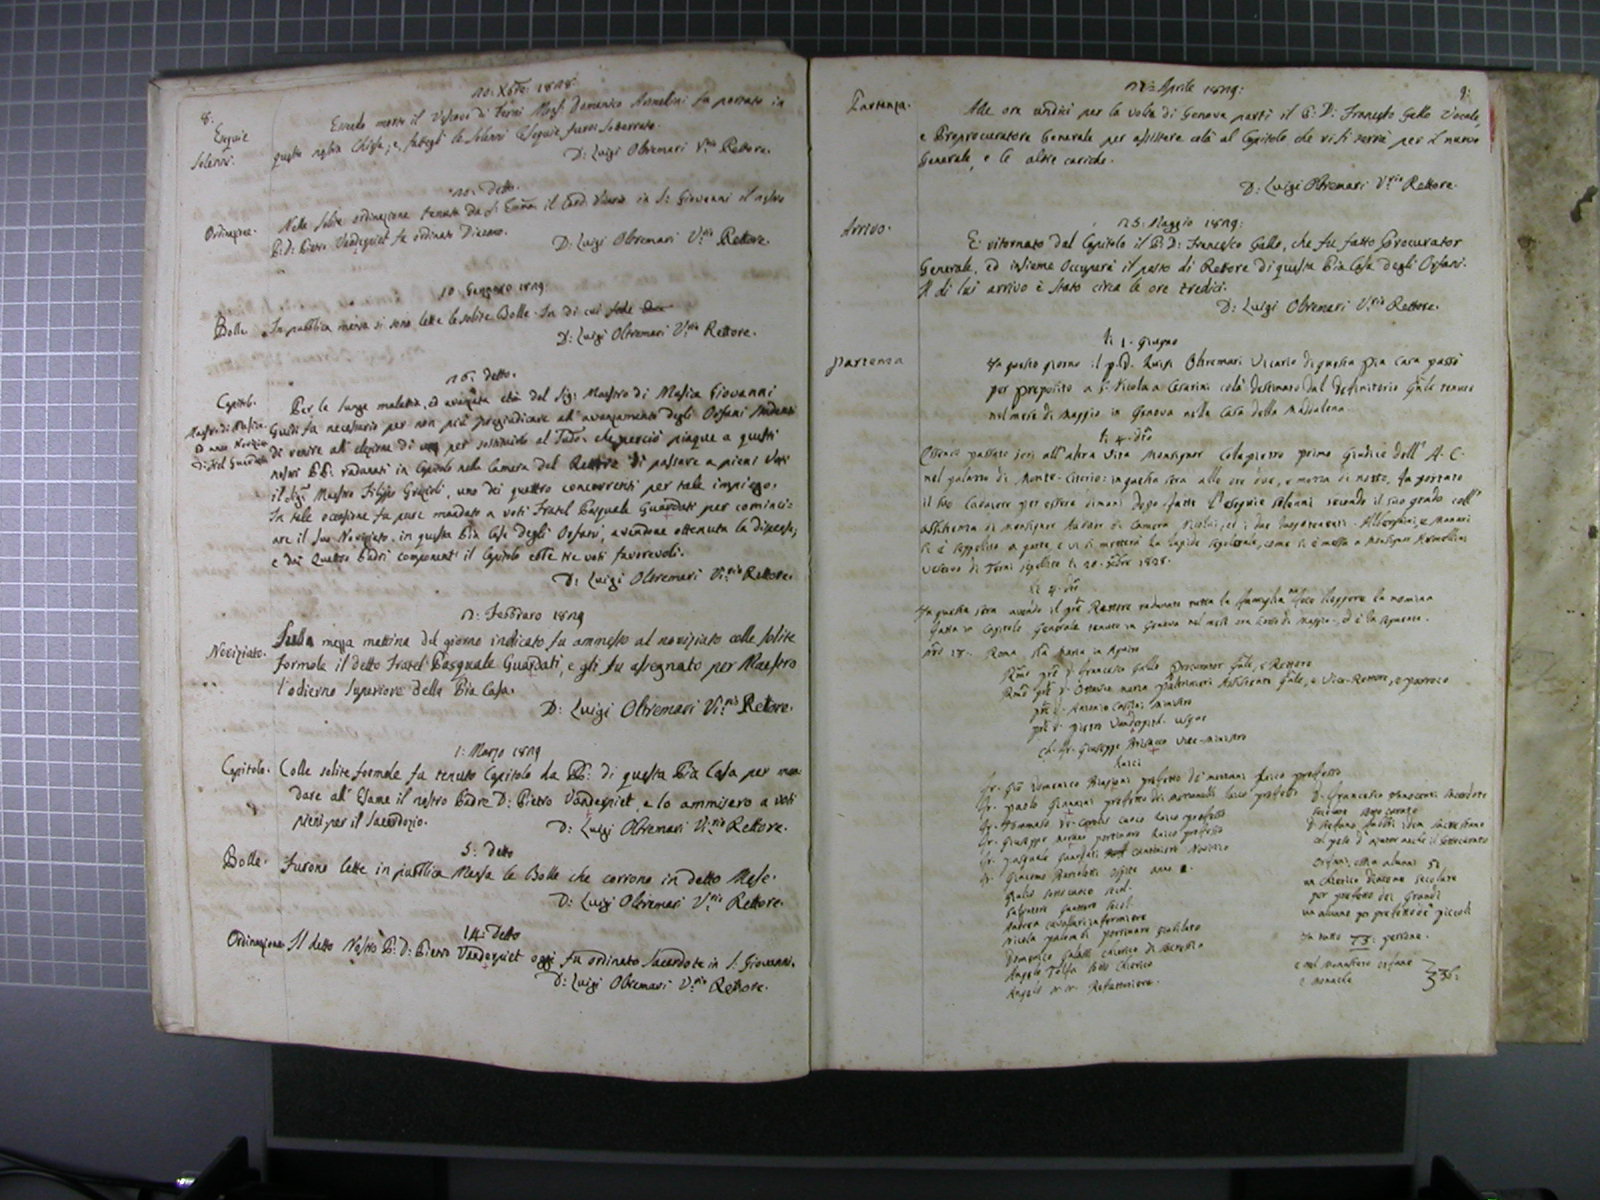 8.
20: Xbre: 1828.
Esequie
Solenni.
Essendo morto il Vescovo di Terni Monsig. Domenico Armellini fu portato in
questa nostra Chiesa, e fattegli le solenni Esequie, fu poi sotterrato.
D: Luigi Oltremari V.rio Rettore.
20: Detto.
Ordinazione.
Nelle solite ordinazione tenuta da S: Emza il Card. Vicario in S: Giovanni il nostro
P: D: Pietro Vandequiet fu ordinato Diacono.
D: Luigi Oltremari V.rio Rettore.
10. Gennaro 1829.
Bolle.
In pubblica mensa si sono lette le solite Bolle. In di cui fede
D: Luigi Oltremari V.rio Rettore.
16: Detto.
Capitolo.
Maestro di Musica.
Ed anno Novizio
di Frel Guardati
Per la lunga malattia, ed avanzata età del Sig: Maestro di Musica Giovanni
Guidi fu necessario per non più pregiudicare all'avanzamento degli Orfani Studenti
di venire all'elezione di uno per sostituirlo al Sudo. che perciò piaque a questi
nostri PP: radunati in Capitolo nella Camera del Rettore di passare a pieni Voti
il Sig. Maestro Filippo Grazioli, uno dei quattro concorrenti per tale impiego.
In tale occasione fu pure mandato a voti Fratel Pasquale Guardati per cominci:
are il suo Noviziato in questa Pia Casa degli Orfani, avendone ottenuta la dispensa,
e dai Quattro Padri componenti il Capitolo ebbe tre voti favorevoli.
D: Luigi Oltremari V.rio Rettore.
2: Febbraro 1829
Noviziato.
Sulla mezza mattina del giorno indicato fu ammesso al noviziato colle solite
formole il detto Fratel Pasquale Guardati, e gli fu assegnato per Maestro
l'odierno Superiore della Pia Casa.
D: Luigi Oltremari Vi.rio Rettore.
1: Marzo 1829
Capitolo.
Colle solite formole fu tenuto Capitolo da PP: di questa Pia Casa per man-
dare all'Esame il nostro Padre D: Pietro Vandequiet, e lo ammisero a voti
pieni per il Sacerdozio.
D: Luigi Oltremari Vi.rio Rettore.
5: Detto
Bolle.
Furono lette in pubblica Mensa le Bolle che corrono in detto Mese.
D: Luigi Oltremari V.rio Rettore.
14: Detto
Ordinazione
Il detto Nostro P: D: Pietro Vandequiet oggi fu ordinato Sacerdote in S. Giovanni.
D: Luigi Oltremari V.rio Rettore.
9:
Aprile 1829:
Partenza.
Alle ore undici per la volta di Genova partì il P: D: Francesco Gallo Vocale,
e Preprocuratore Generale per assistere colà al Capitolo che vi si terrà per il nuovo
Generale, e le altre cariche.
D: Luigi Oltremari V.rio Rettore.
25: Maggio 1829:
Arrivo.
E' ritornato dal Capitolo il P: D: Francesco Gallo, che fu fatto Procurator
Generale, ed insieme Occuperà il posto di Rettore di questa Pia Casa degli Orfani.
Il di lui arrivo è stato circa le ore tredici.
D: Luigi Oltremari V.rio Rettore.
li 1. Giugno
Partenza
In questo giorno il p. D. Luigi Oltremari Vicario di questa Pia Casa passò
per preposito a S. Nicola a Cesarini colà destinato dal Definitorio Gnle tenuto
nel mese di Maggio in Genova nella Casa della Maddalena.
li 4. dto
Essendo passato jeri all'altra Vita Monsignor Colapietro primo Giudice dell'A. C.
nel palazzo di Monte-Citorio: in questa sera alle ore due, e mezza di notte, fu portato
il suo cadavere per essere dimani dopo fatte l'esequie solenni secondo il suo grado coll'
assistenza di Monsignor Auditor di Camera
si è seppellito a parte, e vi si metterà la lapide sepolcrale, come si è messa a Monsignor Armellini
Vescovo di Terni sepolto li 20. Xbre 1828.
li 4. dto
In questa sera avendo il pre Rettore radunato tutta la famiglia fece leggere la nomina
fatta in Capitolo Generale tenuto in Genova nel mese ora scorso di Maggio, ed è la seguente.
Roma Sta Maria in Aquiro
Rmo pre D. Francesco Gallo Procurator Gnle, e Rettore
Rmo pre D. Ottavio Maria Paltrinieri Assistente Gnle, e Vice-Rettore, e parroco
pre D. Antonio Ministro
pre D. Pietro Vandequiet
ch. fr. Giuseppe Vice-Ministro
Laici
fr. Gio Domenico prefetto de' mezzani laico professo
fr. Paolo Giannini prefetto dei mezzanelli laico professo
fr. Tommaso cuoco laico professo
fr. Giuseppe portinaro laico professo
fr. Pasquale Guardati cantiniere Novizio
fr. Giacomo ospite anno
Giulio sotto cuoco
Salvatore
Andrea infermiere
Nicola portinaro
Domenico chierico di
Angelo chierico
Angelo Refettoriere.
D. Francesco Sacerdote
D. Stefano
col peso d'ajutar anche il sottocurato
Orfani, ossia alunni 50.
un chierico diacono secolare
per prefetto dei Grandi
un alunno per prefetto de' piccoli
In tutto 73: persone.
e nel monastero orfane
e monache